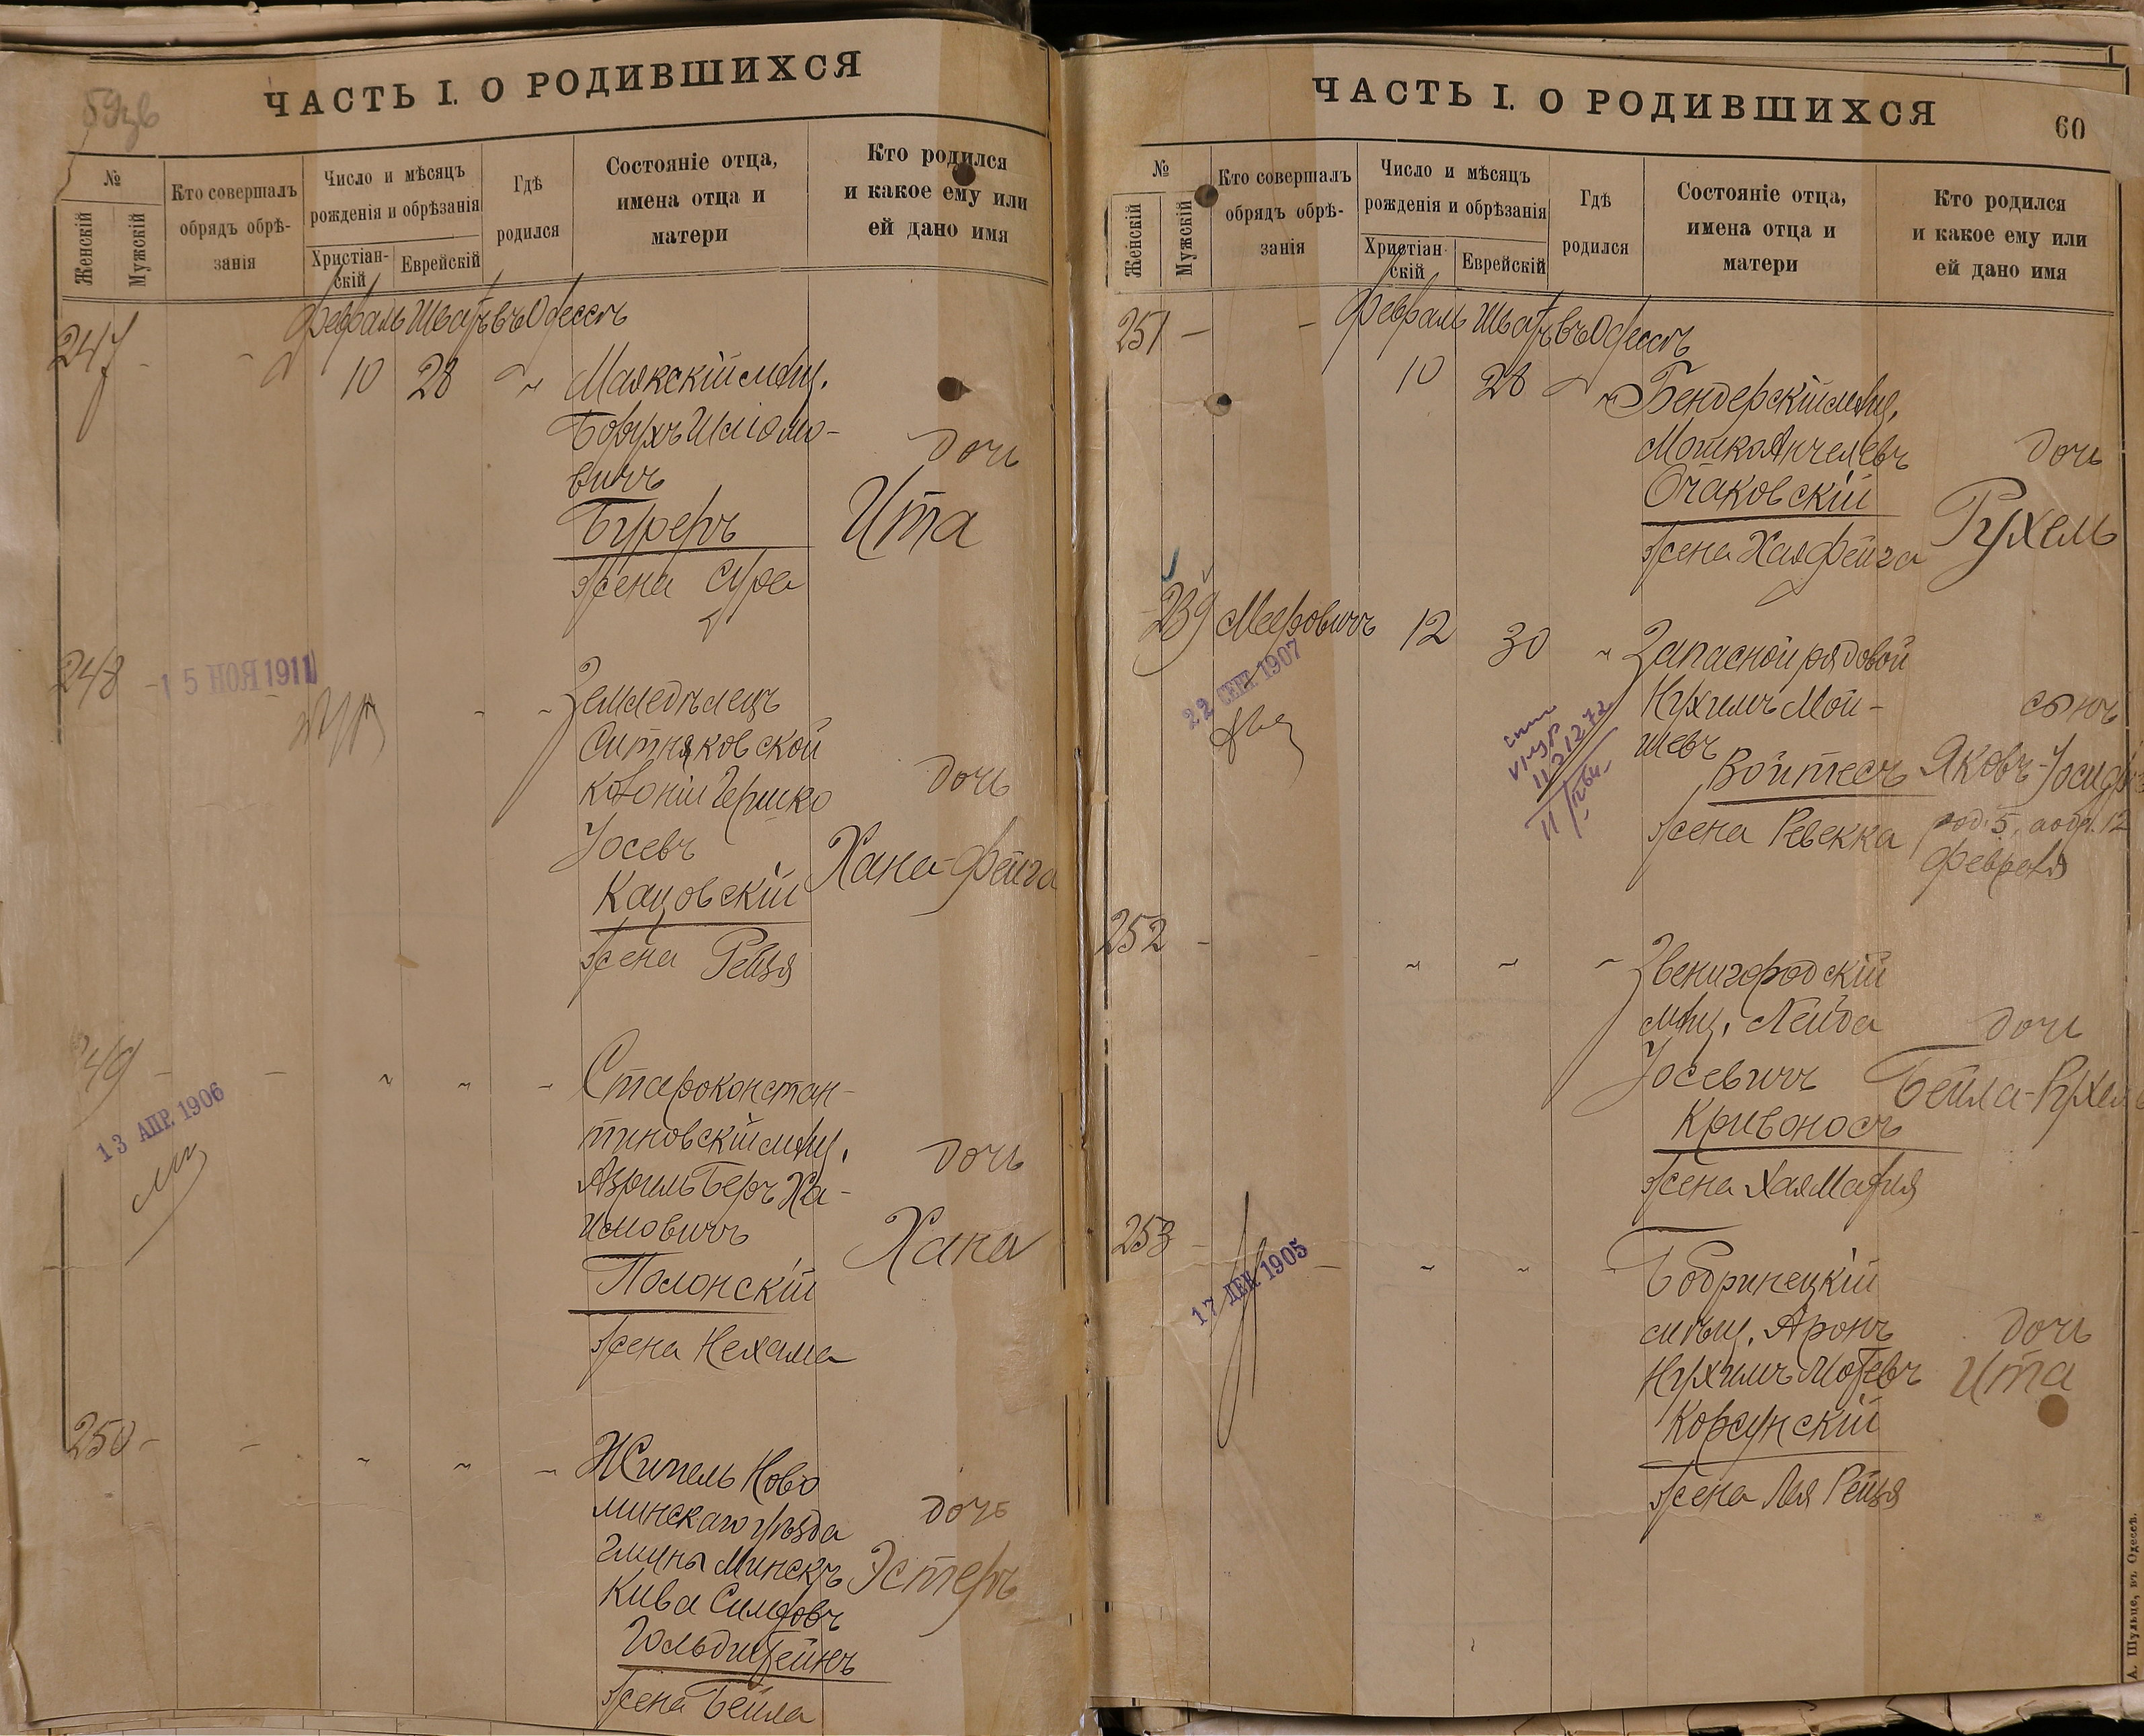 ЧАСТЬ I. О РОДИВШИХСЯ
№
Женскій
Мужскій
Кто совершалъ
обрядъ обрѣ-
занія
Число и мѣсяцъ
рожденія и обрѣзанія
Христіан-
скій
Еврейскій
Гдѣ
родился
Состояніе отца,
имена отца и
матери
Кто родился
и какое ему или
ей дано имя
Февраль Шватъ въ Одессѣ
247 - - 10 28 Маякскій мѣщ.
Борухъ Шліомо-
вичъ
Буреръ
жена Сура
дочь
Ита
248 - 15 НОЯ 1911
Земледѣлецъ
Ситняковской
колоніи Гершко
Іосевъ
Кацовскій
жена Рейзя
дочь
Хана-Фейга
249 - -
13 АПР. 1906
Староконстан-
тиновскій мѣщ.
Азриль Беръ Ха-
имовичъ
Полонскій
жена Нехама
дочь
Хана
250 - -
Житель Ново
минскаго уѣзда
гмины Минскъ
Кива
Гольдштейнъ
жена Бейла
дочь
Эстеръ
ЧАСТЬ I. О РОДИВШИХСЯ
60
№
Женскій
Мужскій
Кто совершалъ
обрядъ обрѣ-
занія
Число и мѣсяцъ
рожденія и обрѣзанія
Христіан-
скій
Еврейскій
Гдѣ
родился
Состояніе отца,
имена отца и
матери
Кто родился
и какое ему или
ей дано имя
251 - - Февраль Шватъ въ Одессѣ
10 28 Бендерскій мѣщ.
Мошко Анчелевъ
Очаковскій
жена Хая Фейга
дочь
Рухель
239 Мееровичъ 12 30 " Запасной рядовой
22 СЕНТ. 1907
Нухимъ Мой-
шевъ
Войтесъ
жена Ревекка
сынъ
Яковъ-Іосифъ
род. 5, а обр. 12
февраля
252 - -
Звенигородскій
мѣщ. Лейба
Іосевичъ
Кривоносъ
жена Хая Марія
дочь
Бейла-Рухель
253 - -
17 ДЕК. 1905
Бобринецкій
мѣщ. Аронъ
Нухимъ Мотевъ
Корсунскій
жена Лея Рейзя
дочь
Ита
А. Шульце, въ Одессѣ.